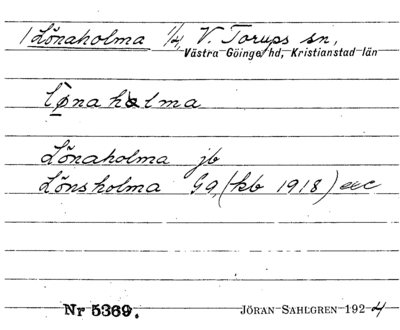 1 Lönaholma 1/4, V. Torups sn,
Västra Göinge hd, Kristianstad län
Lönaholma jb
Lönsholma Gg, (kb 1918) etc
Nr 5369.
JÖRAN SAHLGREN 1924